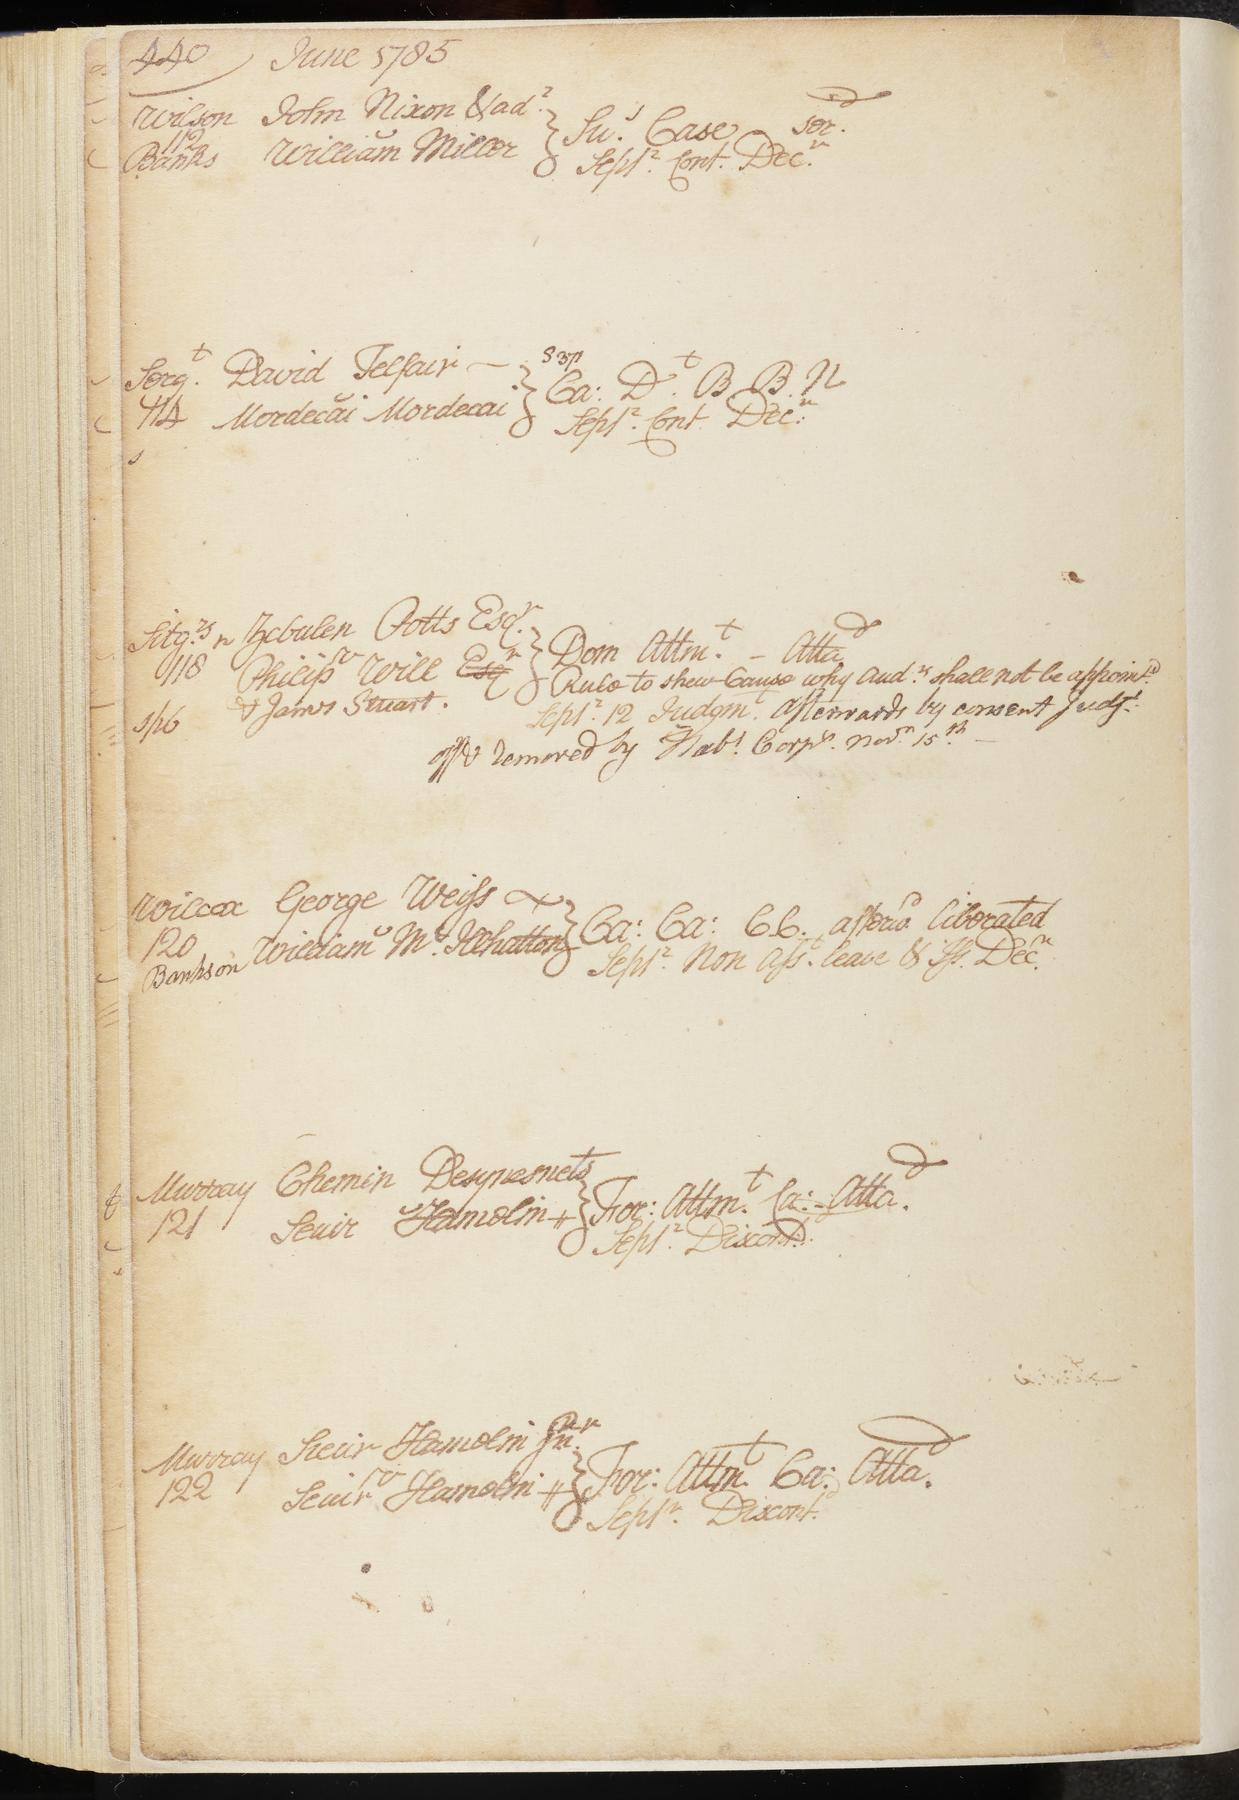 440 June 1785
Wilson John Nixon & ad.r
112
Banks William Miller
Su.s Case ser.
Sept.r Cont. Dec.r
Serg.t David Telfair —
114 Mordecai Mordecai
Ca: D.t B. B. N
Sept.r Cont. Dec.r
Zebulen Potts Esq.r
118 Philip Will Esq.r
& James Stuart.
Dom Attm.t – Atta.d
Rule to shew Cause why aud.rs shall not be appoint.d
Sept.r 12 Judgm.t afterwards by consent Judg.t
off & removed by Hab.s Corp.s Nov.r 15.th —
Wilcox George Weiss
120
Bankson William Mc Ilhatton
Ca: Ca: C.C. liberated
Sept.r Non Ass.t leave & Iss. Dec.r
Murray Chemin
121 Seuir Hamolin
For: Attm.t Ca: Atta.d
Sept.r Discont.d
Murray Sieur Hamolin Jun.r
122 Seuir Hamolin
For: Attm.t Ca: Atta.d
Sept.r Discont.d